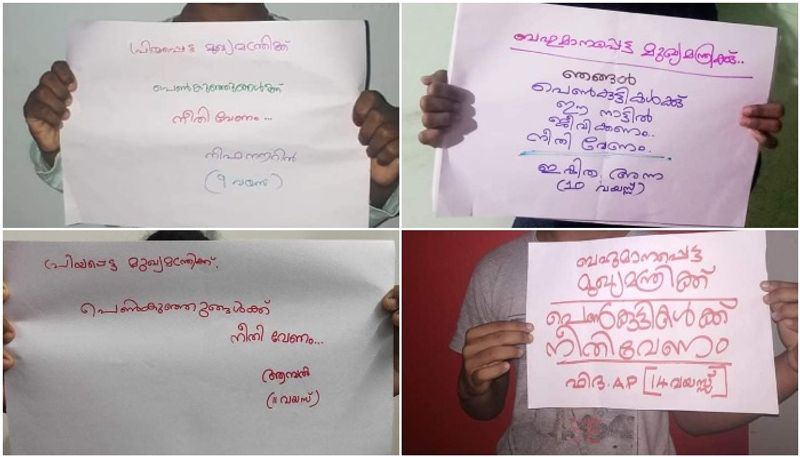 പ്രിയപ്പെട്ട മുഖ്യമന്ത്രിക്ക്
പെൺകുഞ്ഞുങ്ങൾക്ക്
നീതി വേണം...
(9 വയസ്)
ബഹുമാനപ്പെട്ട മുഖ്യമന്ത്രിക്ക്..
ഞങ്ങൾ
പെൺകുട്ടികൾക്ക്
ഈ നാട്ടിൽ
ജീവിക്കണം.
നീതി വേണം.
ഇഷിത അന്ന
(10 വയസ്സ്)
പ്രിയപ്പെട്ട മുഖ്യമന്ത്രിക്ക്,
പെൺകുഞ്ഞുങ്ങൾക്ക്
നീതി വേണം...
ആമ്പൽ
(8 വയസ്)
ബഹുമാനപ്പെട്ട
മുഖ്യമന്ത്രിക്ക്
പെൺകുട്ടികൾക്ക്
നീതിവേണം
ഫിദ.A.P [14 വയസ്സ്]